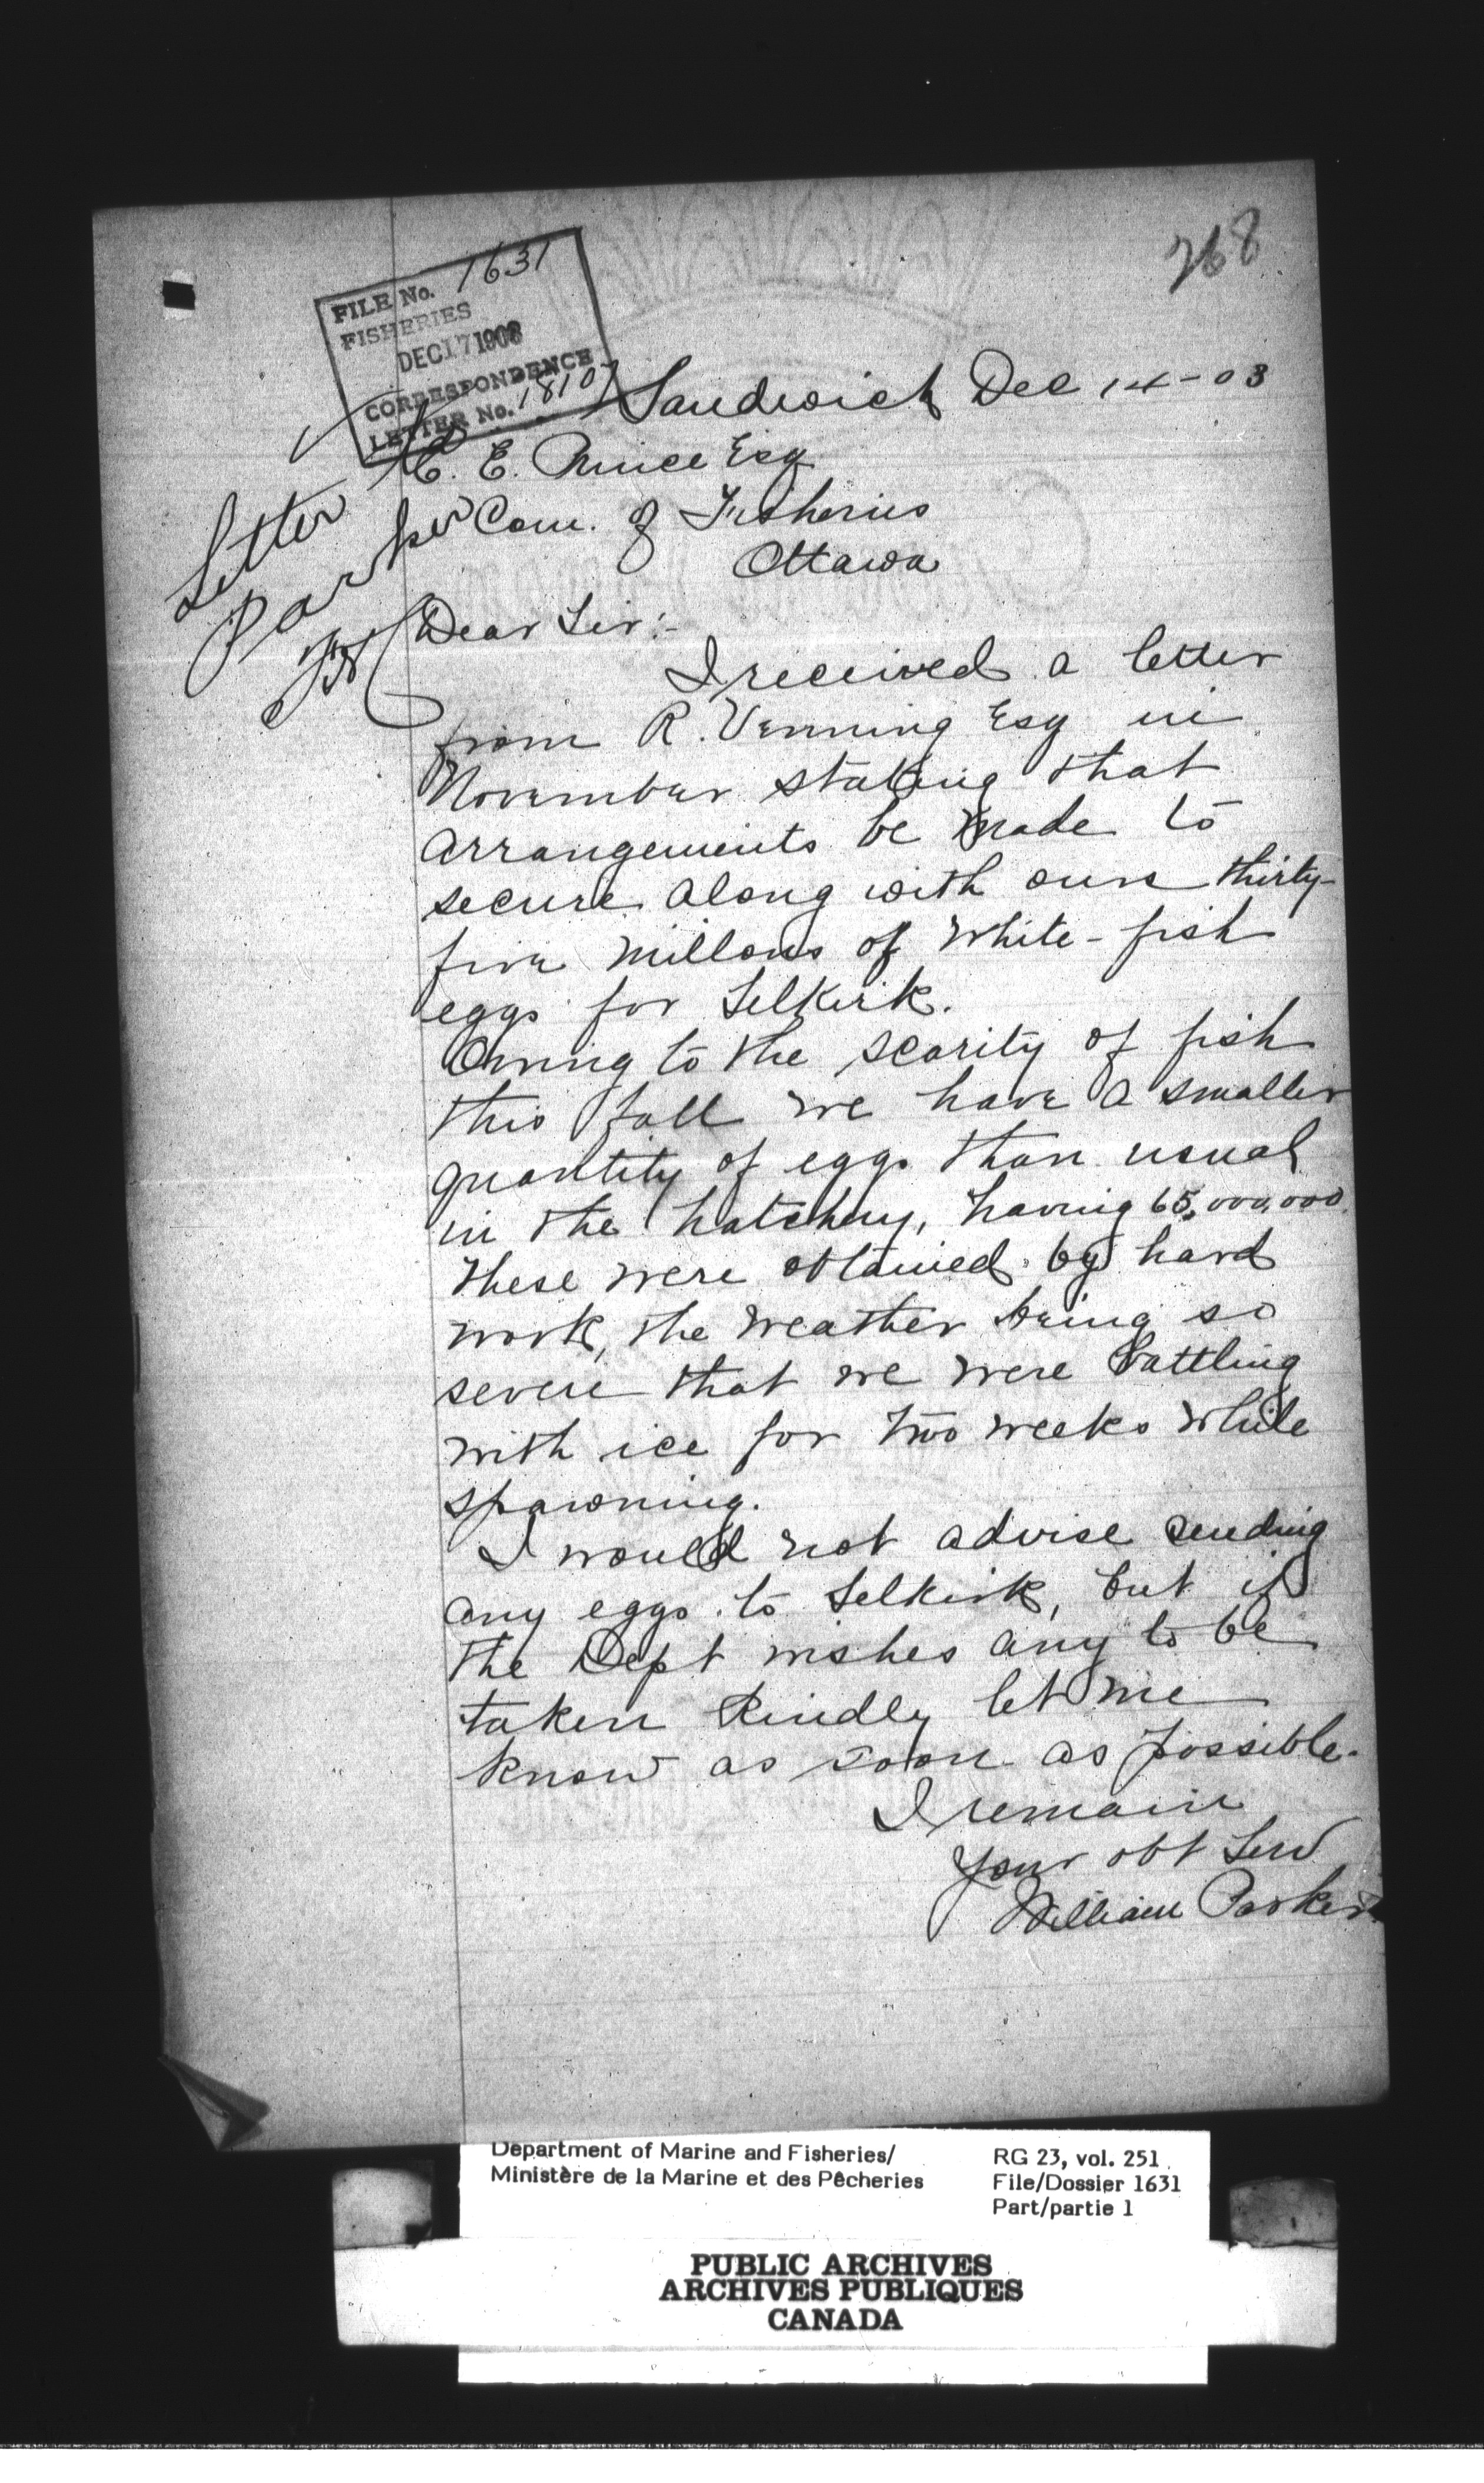 268
FILE No. 1631
FISHERIES
DEC 17 1903
CORRESPONDENCE
LETTER No. 18107
Sandwich Dec 14-03
E. E. Prince Esq
Com. of Fisheries
Ottawa
Letter
Parker
Dear Sir:-
I received a letter
from R. Venning Esq in
November stating that
arrangements be made to
secure along with ours thirty-
five millons of white-fish
eggs for Selkirk.
Owing to the scarity of fish
this fall we have a smaller
quantity of eggs than usual
in the hatchery, having 65,000,000.
These were obtained by hard
work, the weather being so
severe that we were battling
with ice for two weeks while
spawning.
I would not advise sending
any eggs to Selkirk, but if
the Dept wishes any to be
taken kindly let me
know as soon as possible.
I remain
Your obt Serv
William Parker
Department of Marine and Fisheries/
Ministère de la Marine et des Pêcheries
RG 23, vol. 251
File/Dossier 1631
Part/partie 1
PUBLIC ARCHIVES
ARCHIVES PUBLIQUES
CANADA